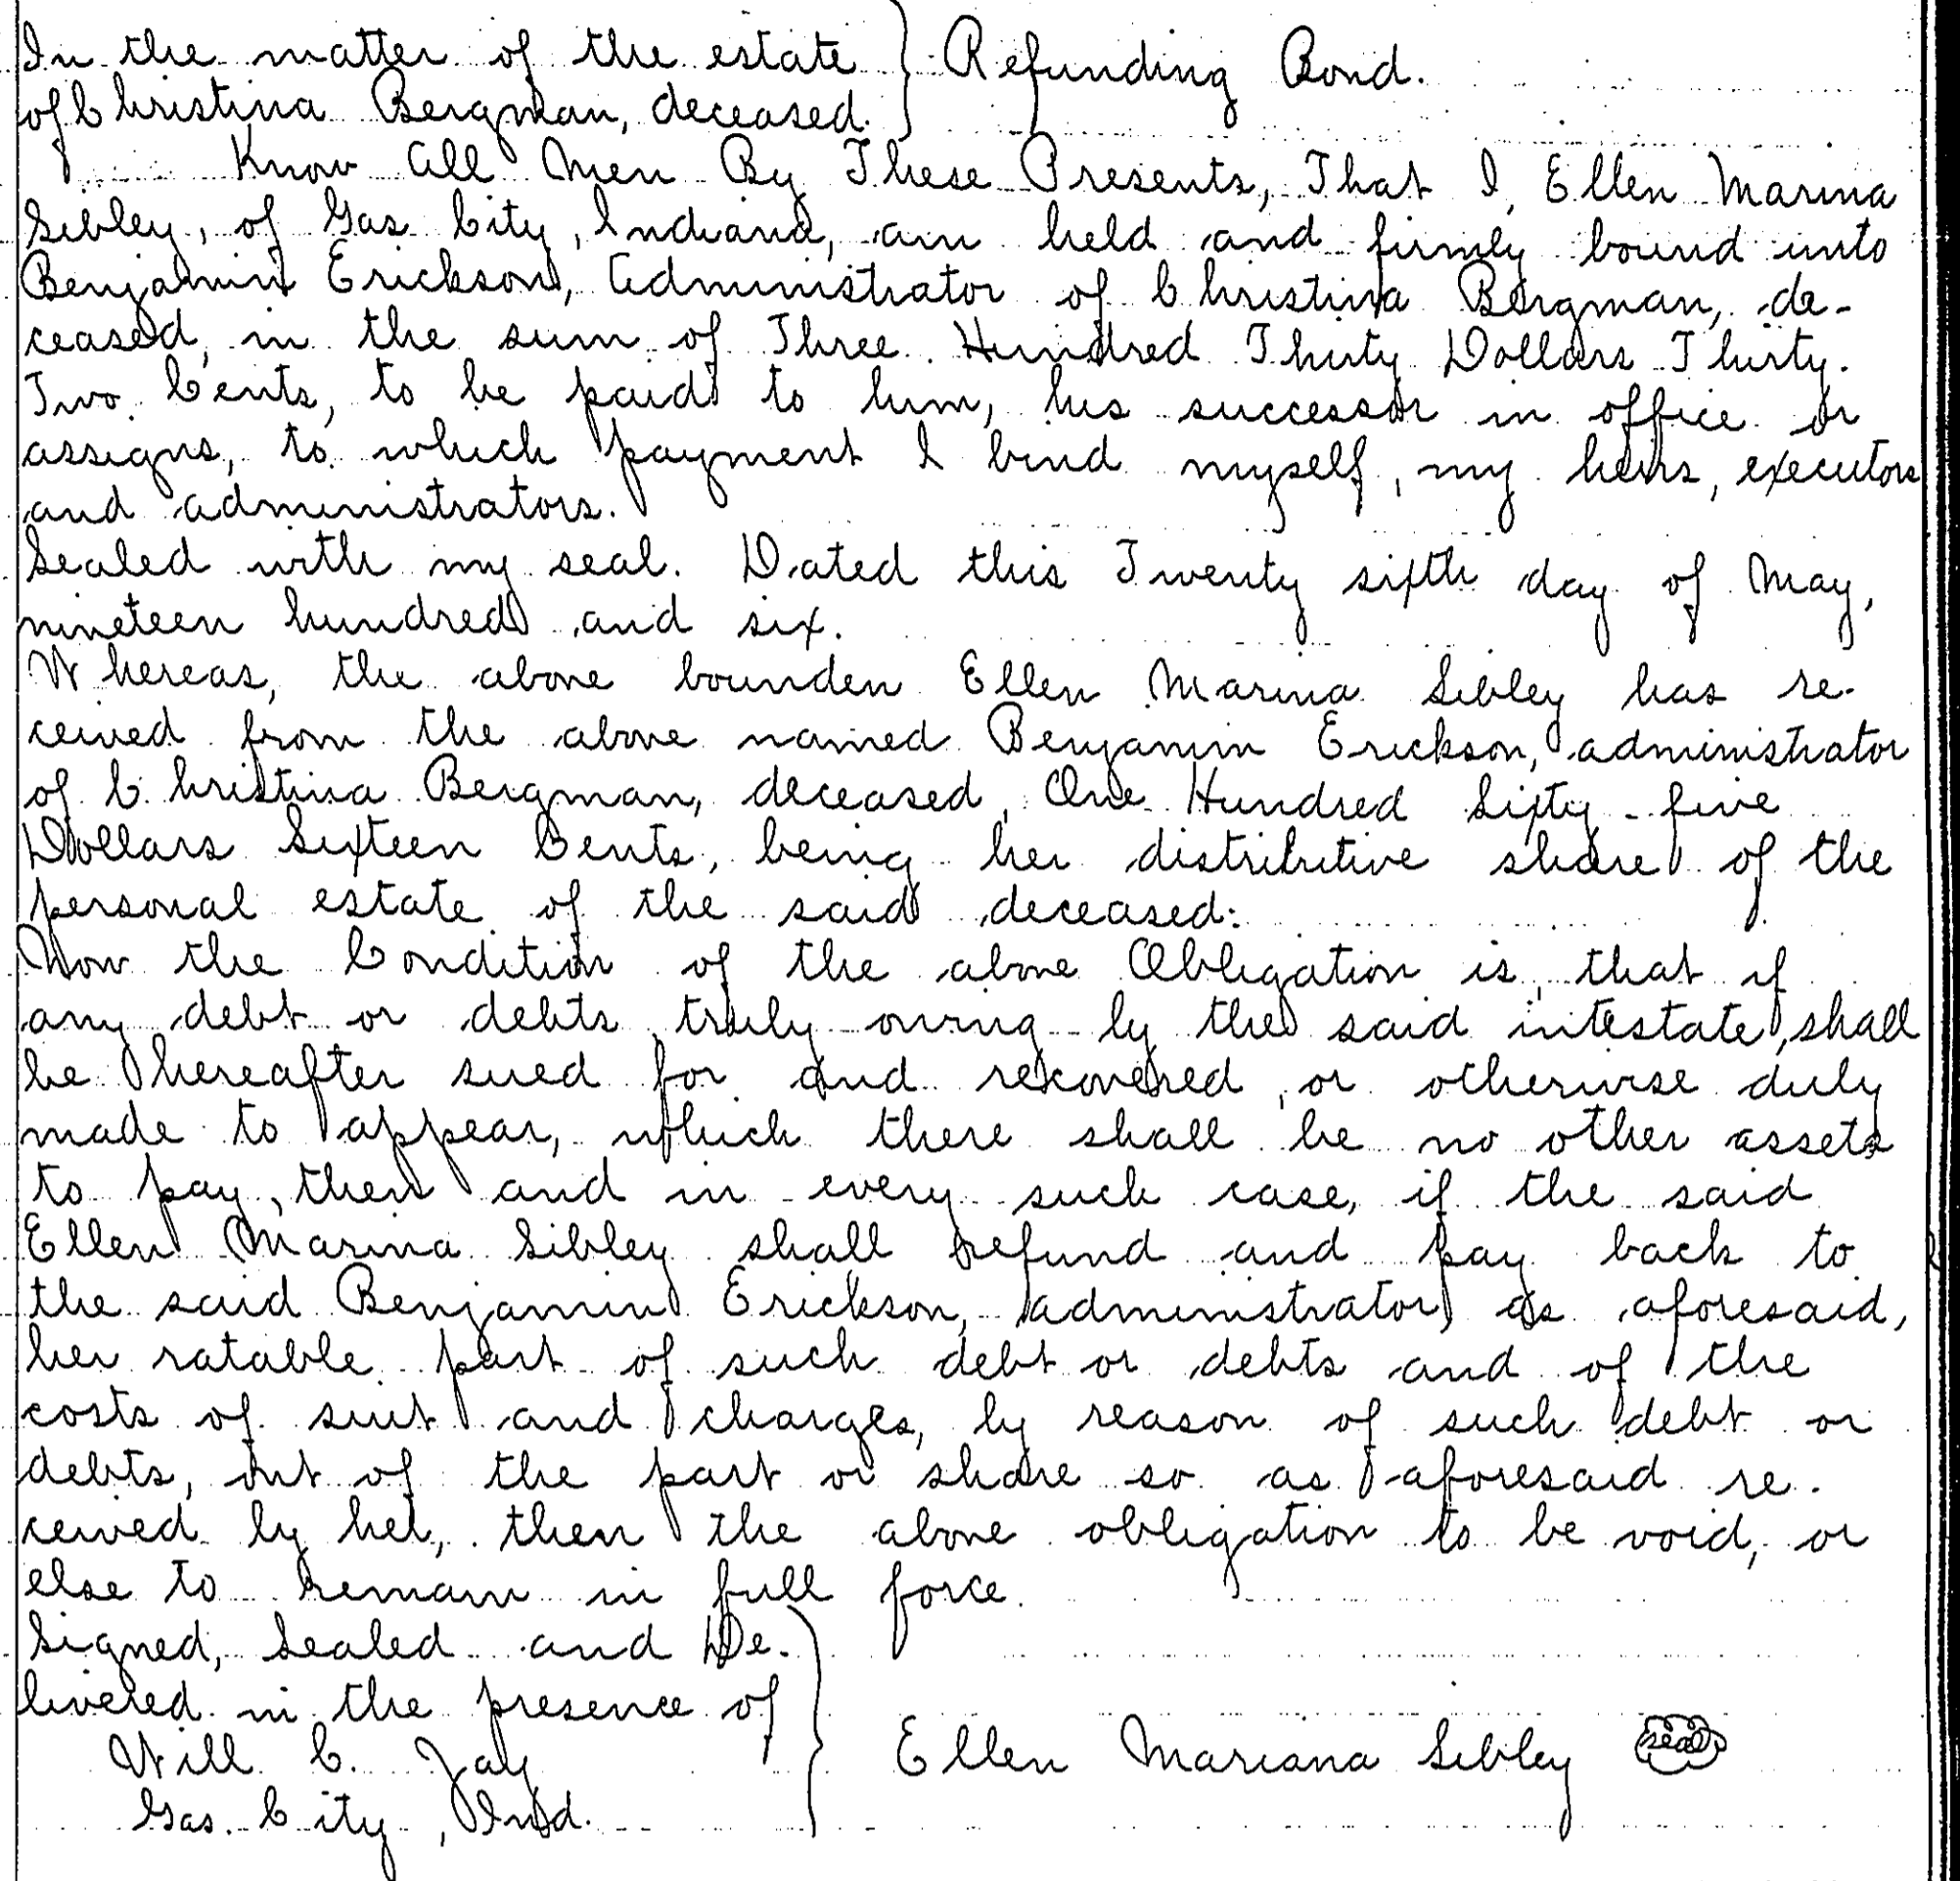 In the matter of the estate } Refunding Bond.
of Christina Bergman, deceased. }
Know All Men By These Presents, That I, Ellen Marina
Sibley, of Gas City, Indiana, am held and firmly bound unto
Benjamin Erickson, Administrator of Christina Bergman, de-
ceased, in the sum of Three Hundred Thirty Dollars Thirty-
Two Cents, to be paid to him, his successor in office or
assigns, to which payment I bind myself, my heirs, executors
and administrators.
Sealed with my seal. Dated this Twenty sixth day of May,
nineteen hundred and six.
Whereas, the above bounden Ellen Marina Sibley has re-
ceived from the above named Benjamin Erickson, administrator
of Christina Bergman, deceased, One Hundred Sixty-five
Dollars Sixteen Cents, being her distributive share of the
personal estate of the said deceased:
Now the Condition of the above Obligation is, that if
any debt or debts truly owing by the said intestate, shall
be hereafter sued for and recovered, or otherwise duly
made to appear, which there shall be no other assets
to pay, then and in every such case, if the said
Ellen Marina Sibley shall refund and pay back to
the said Benjamin Erickson, administrator, as aforesaid,
her ratable part of such debt or debts and of the
costs of suit and charges, by reason of such debt or
debts, out of the part or share so as aforesaid re-
ceived by her, then the above obligation to be void, or
else to remain in full force.
Signed, Sealed and De-
livered in the presence of
Will C. Jay
Gas City, Ind.
Ellen Mariana Sibley seal